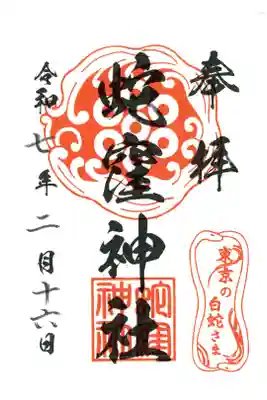 奉拝
蛇窪神社
令和七年二月十六日
東京の
白蛇さま
蛇窪
神社